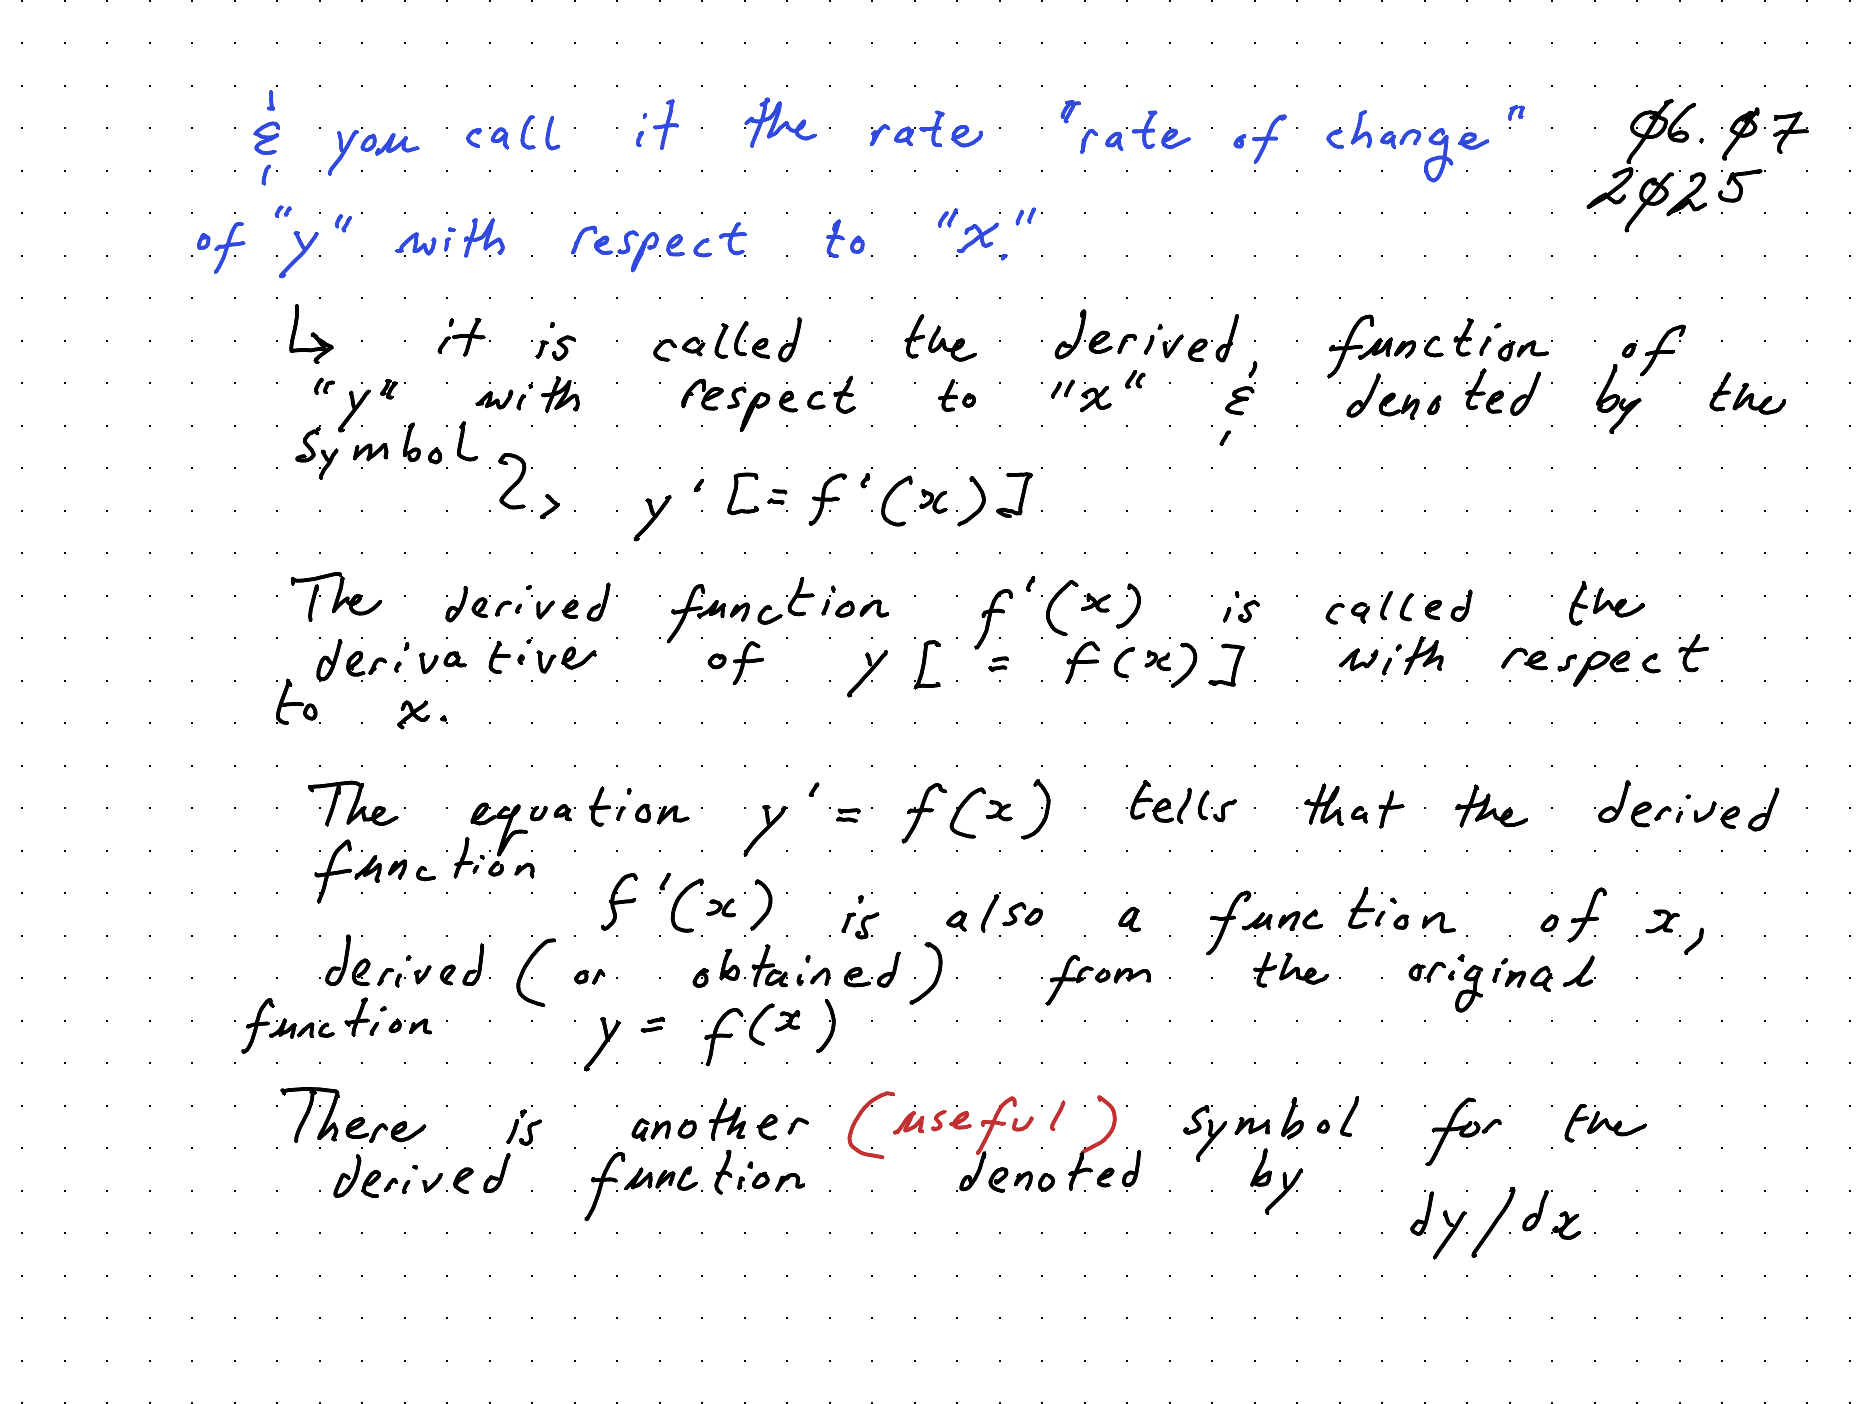 & you call it the rate "rate of change"
06.07
2025
of "y" with respect to "x."
↳ it is called the derived, function of
"y" with respect to "x" & denoted by the
symbol
y' [= f'(x)]
The derived function f'(x) is called the
derivative of y [ = f(x)] with respect
to x.
The equation y' = f(x) tells that the derived
function
f'(x) is also a function of x,
derived (or obtained) from the original
function y = f(x)
There is another (useful) symbol for the
derived function denoted by
dy/dx